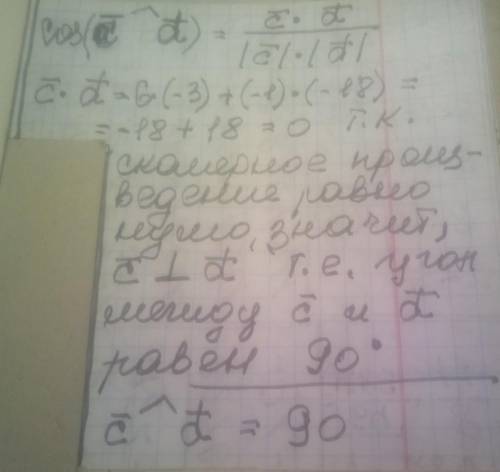 cos(c̄ ^ d̄) = c̄ · d̄ / |c̄| · |d̄|
c̄ · d̄ = 6·(-3) + (-1)·(-18) =
= -18 + 18 = 0 т.к.
скалярное произ-
ведение равно
нулю, значит,
c̄ ⊥ d̄ т.е. угол
между c̄ и d̄
равен 90°
c̄ ^ d̄ = 90